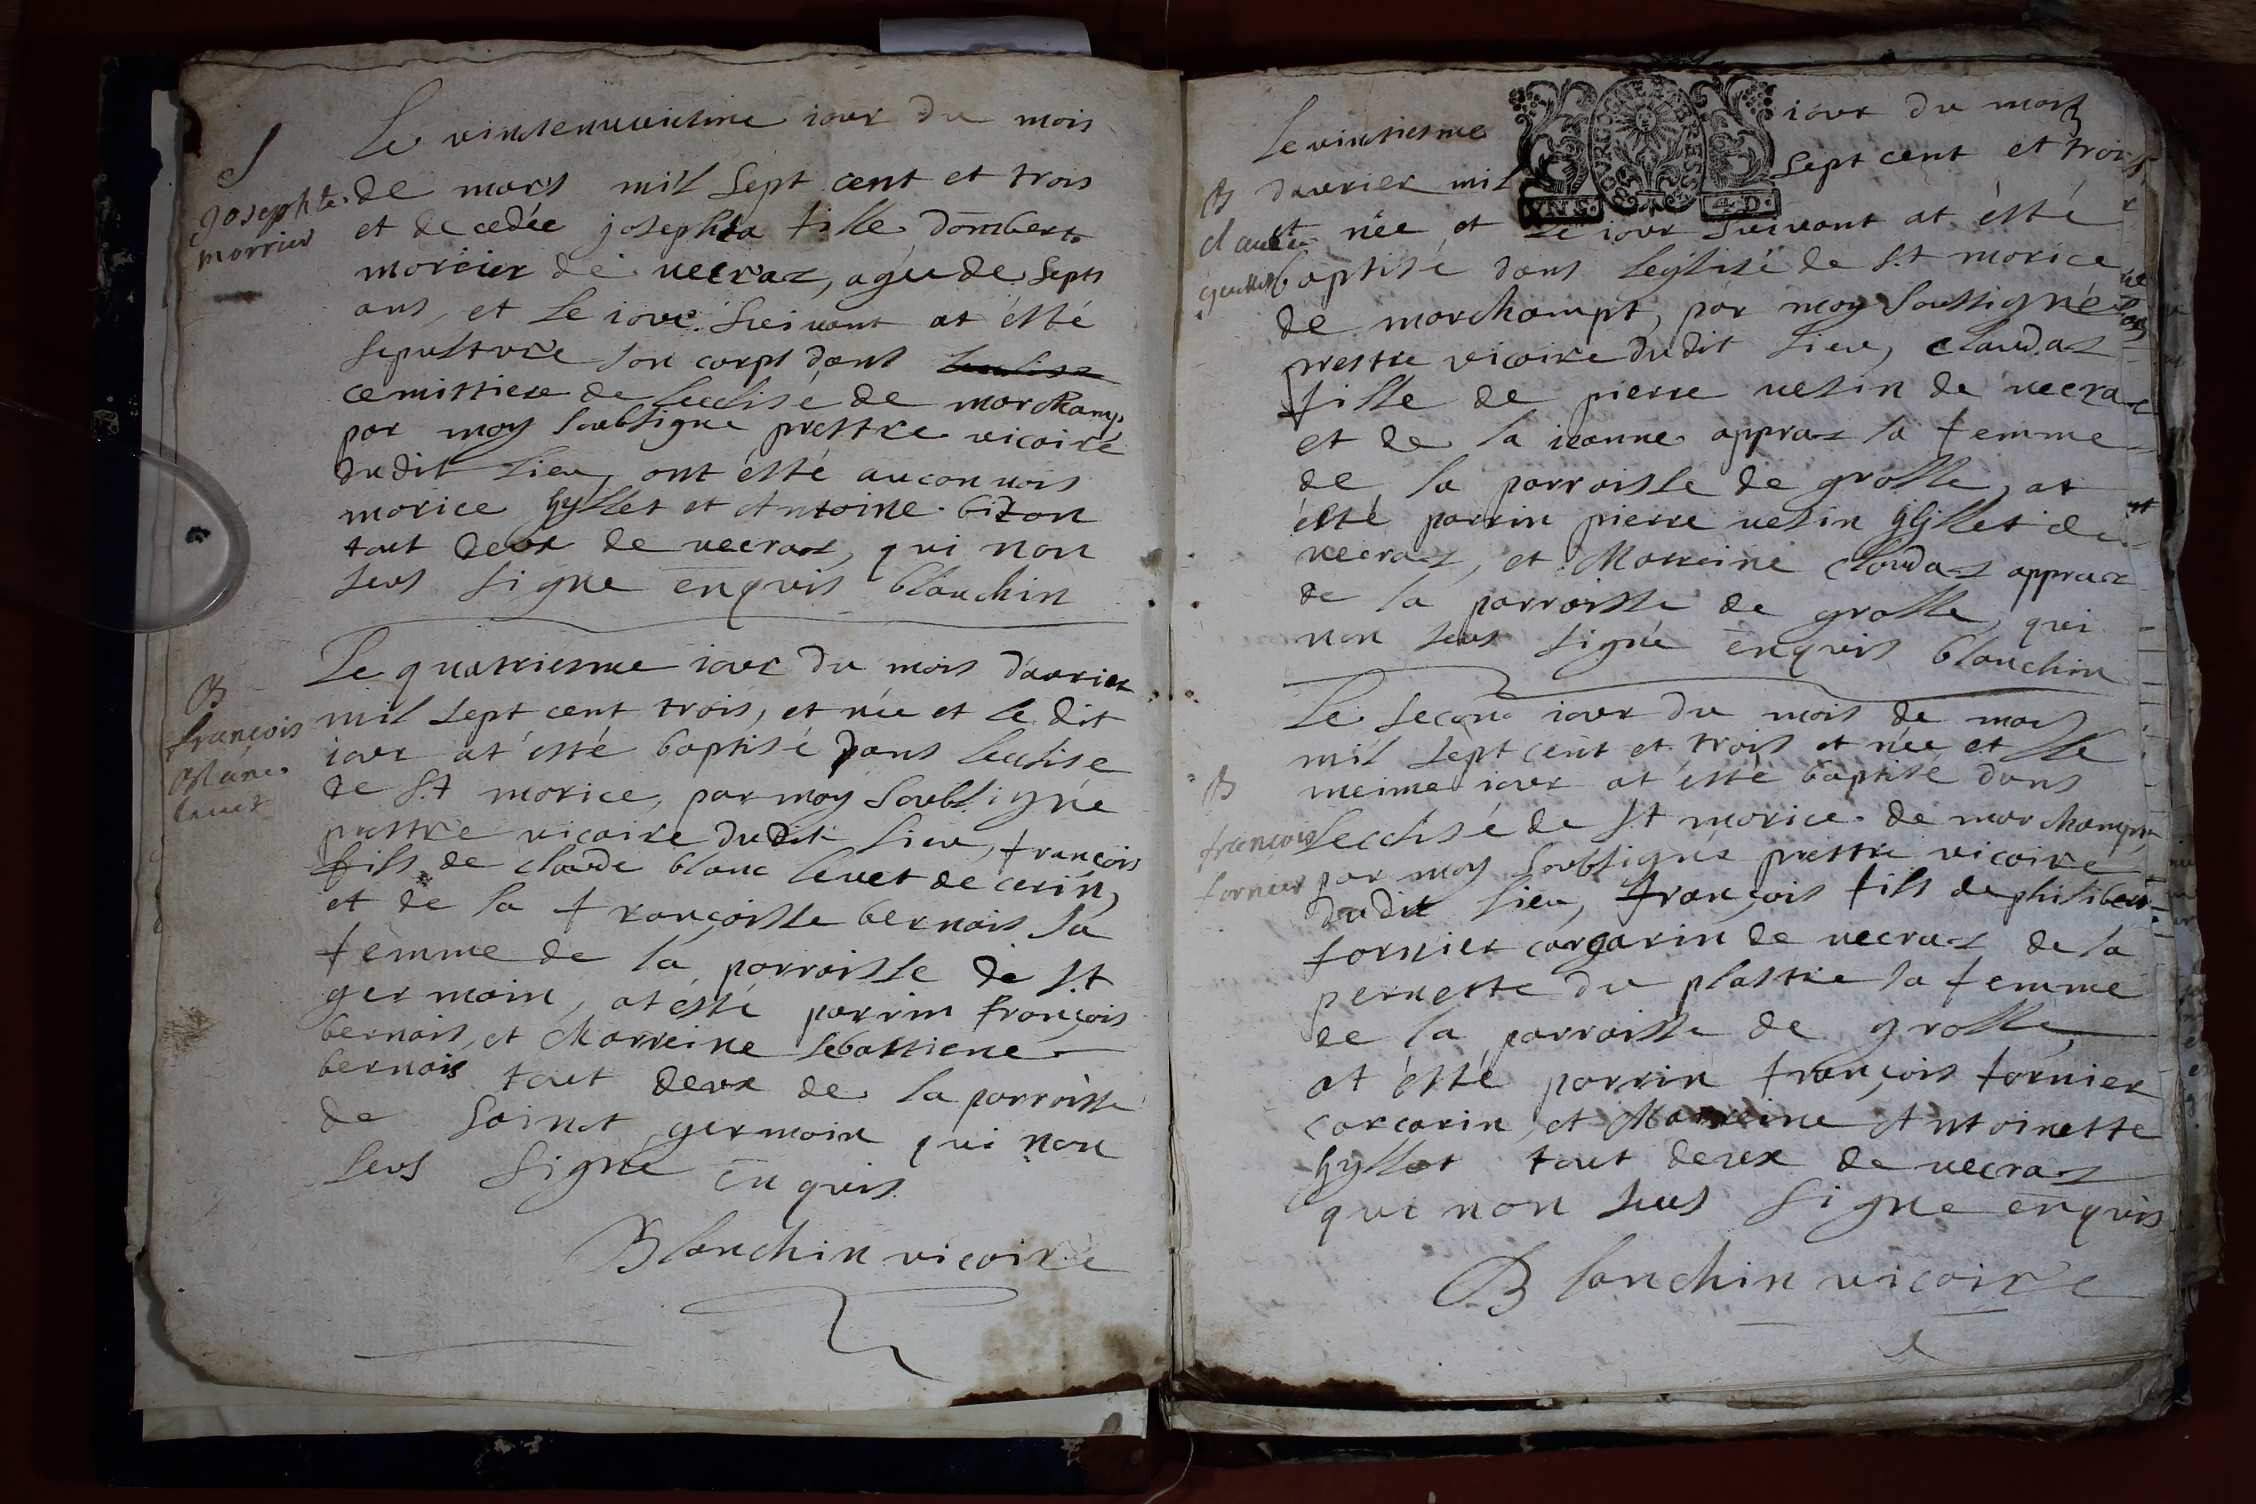 Le vinsenuuiesme iour du mois
S
josephte
morrier
de mars mil sept cent et trois
et decedée josephta fille dombert
morcier de vecraz, agée de septs
ans, et le iour suivant at ésté
sepulture son corps dans
cemittiere de lecclise de marchamp
par moy soubsigne prestre vicaire
dudit lieu, ont ésté auconvois
morice gyllet et Antoine bizon
tout deux de vecraz, qui non
seus signe enquis blanchin
Le quatriesme iour du mois davrier
B
françois
blanc
levet
mil sept cent trois, et née et le dit
iour at ésté baptisé dans lecclise
de St morice, par moy soubsigné
prestre vicaire dudit lieu, françois
fils de claude blanc levet de cerin,
et de la françoisse bernais sa
femme de la parroisse de St
germain, at ésté parrin françois
bernais, et Marreine sebastiene
bernais tout deux de la parroisse
de sainct germain qui non
seus signe enquis
Blanchin vicaire
Le vintiesme iour du mois
BOURGOGNE BRESSE
VN S. 4 D.
B
davrier mil sept cent et trois
et née et le iour suivant at ésté
baptisé dans leglisé de St morice
de marchampt, par moy soussigné
prestre vicaire dudit lieu, claudaz
fille de pierre vesin de vecraz
et de la ieanne appraz sa femme
de la parroisse de grolle, at
ésté parrin pierre vesin gyllet de
vecraz, et Marreine claudaz appraz
de la parroisse de grolle, qui
non seus signé enquis blanchin
Le second iour du mois de mars
mil sept cent et trois et née et le
B
françois
fornier
meime iour at ésté baptisé dans
lecclisé de St morice de marchampt
par moy soubsigné prestre vicaire
dudit lieu, françois fils de philibert
fornier carcarin de vecraz de la
pernette du plastre sa femme
de la parroisse de grolle,
at ésté parrin françois fornier
carcarin, et Marreine Antoinette
gyllet tout deux de vecraz
qui non seus signe enquis
Blanchin vicaire